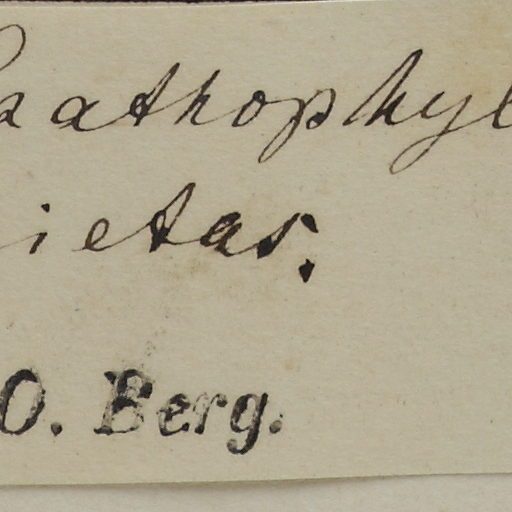 aathophyl
ietas.
O. Berg.